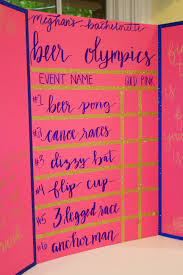 meghan's bachelorette
beer olympics
EVENT NAME GOLD PINK
#1 beer pong
#2 canoe races
#3 dizzy bat
#4 flip cup
#5 3 legged race
#6 anchorman